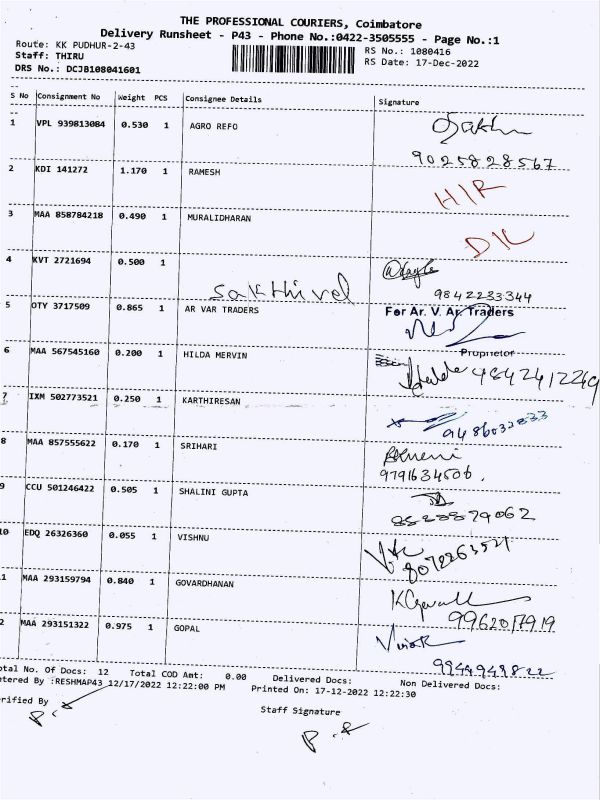 THE PROFESSIONAL COURIERS, Coimbatore
Delivery Runsheet - P43 - Phone No.:0422-3505555 - Page No.:1
Route: KK PUDHUR-2-43
RS No.: 1080416
Staff: THIRU
RS Date: 17-Dec-2022
DRS No.: DCJB108041601
S No Consignment No Weight PCS Consignee Details Signature
1 VPL 939813084 0.530 1 AGRO REFO
9025828567
2 KDI 141272 1.170 1 RAMESH
H/R
3 MAA 858784218 0.490 1 MURALIDHARAN
D/L
4 KVT 2721694 0.500 1
Sakthivel 9842233344
5 OTY 3717509 0.865 1 AR VAR TRADERS
For Ar. V. Ar. Traders
Proprietor
6 MAA 567545160 0.200 1 HILDA MERVIN
Hilda 9842412269
7 IXM 502773521 0.250 1 KARTHIRESAN
9486032833
8 MAA 857555622 0.170 1 SRIHARI
9791634506.
9 CCU 501246422 0.505 1 SHALINI GUPTA
10 EDQ 26326360 0.055 1 VISHNU
8072263521
1 MAA 293159794 0.840 1 GOVARDHANAN
9962017919
2 MAA 293151322 0.975 1 GOPAL
9944949822
otal No. Of Docs: 12 Total COD Amt: 0.00 Delivered Docs: Non Delivered Docs:
ntered By :RESHMAP43 12/17/2022 12:22:00 PM Printed On: 17-12-2022 12:22:30
erified By
Staff Signature